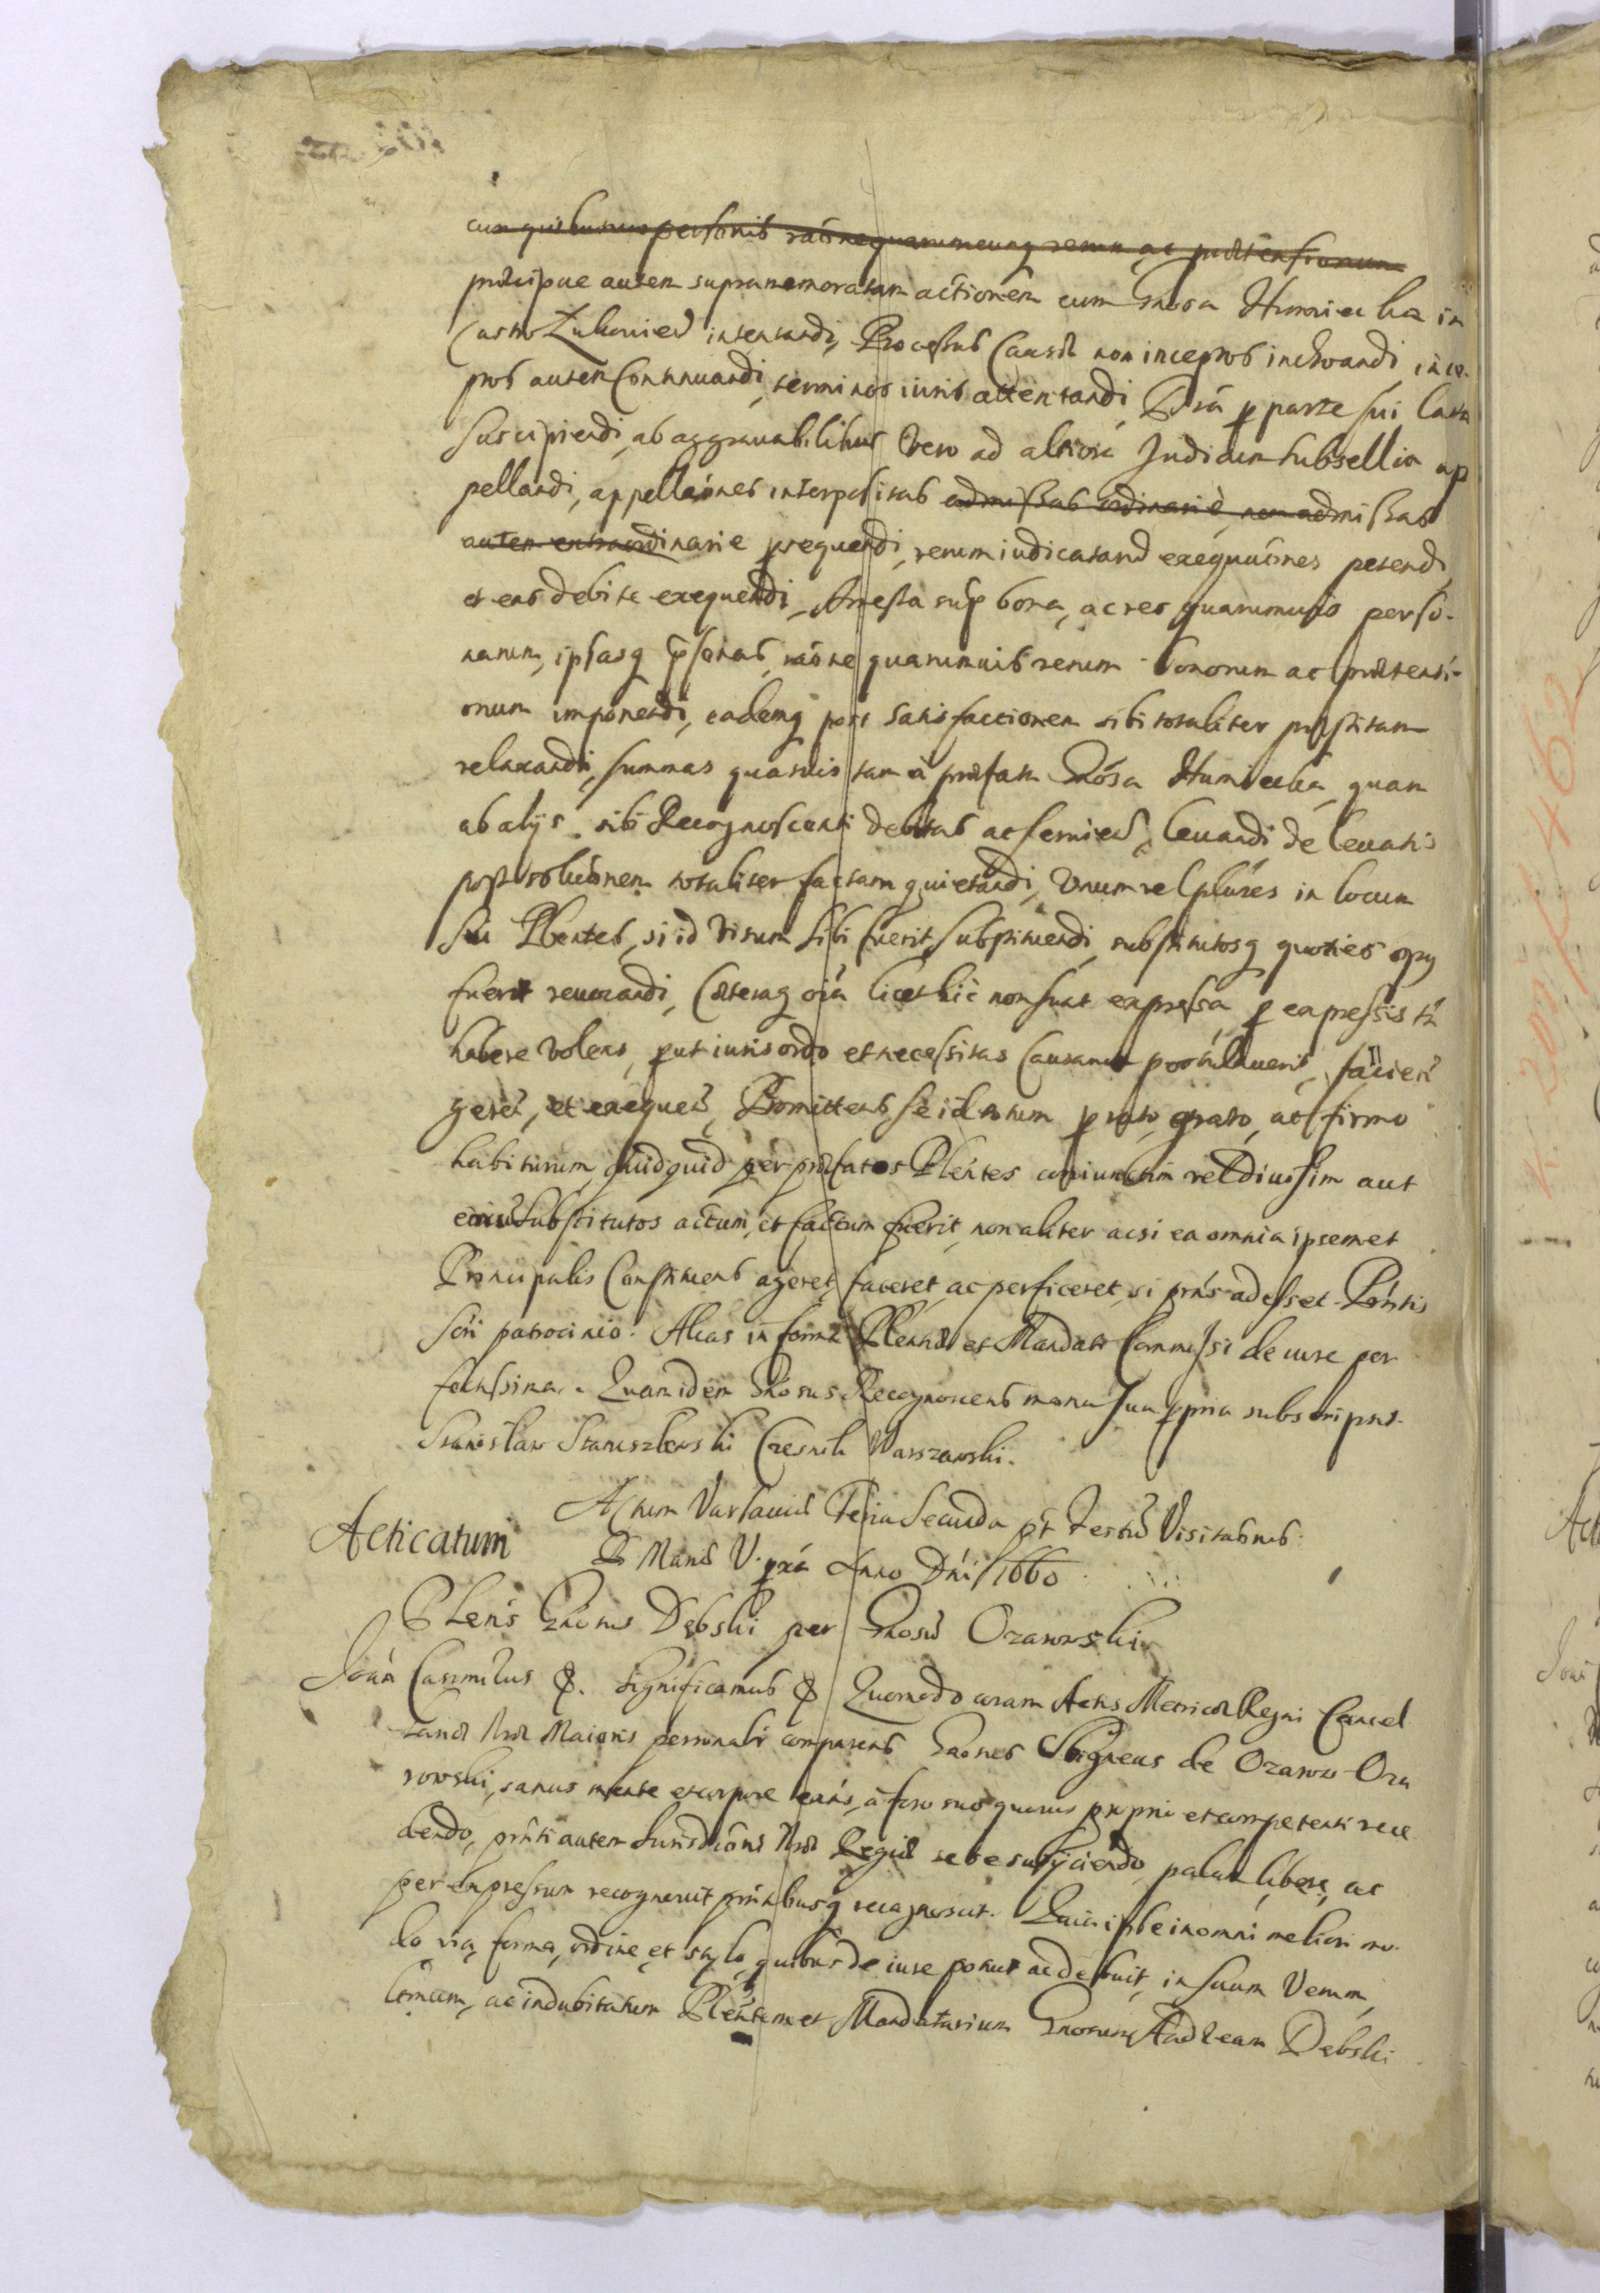 cum quibusvis personis raõne quarumcunq rerum ac prætensionum
præcipue autem supramemoratam actionem cum Gnosa Humiecka in
Castro intentandi, Processus Causæ non inceptos inchoandi, ince
ptos autem Continuandi, terminos iuris attentandi, p parte sui lata
suscipiendi, ab aggravabilibus vero ad altiora Judiciar subsellia ap
pellandi, appellaónes interpositas admissas ordinariè, non admissas
autem extraordinarie prosequendi, rerum iudicatarũ exequuónes petendi
et eas debite exequendi, Arresta sup bona, ac res quarumvis perso-
narum, ipsasq psonas, raóne quarumvis rerum bonorum ac prætensi-
onum imponendi, eademq post satisfactionem sibi totaliter præstitam
relaxandi, summas quasvis tam à præfata Gnósa Humiecka, quam
ab alijs sibi Recognoscenti debitas ac levandi de levatis
post soluónem totaliter factam quietandi, Unum vel plures in locum
sui Plentes, si id visum sibi fuerit substituendi, substitutosq quoties opus
fuerit revocandi, Cæteraq oía licet hic non sunt expressa, p expressis tñ
habere volens, put iuris ordo et necessitas Causarum postulaverit, facien
geren, et exequen, Promittens se id totum p rato, grato, ac firmo
habiturum, quidquid per præfatos Plentes coniunctim vel divisim aut
eorũ substitutos actum, et factum fuerit, non aliter acsi ea omnia ipsemet
Principalis Constituens ageret, faceret, ac perficeret, si prńs adesset. Pńtis
scri patrocinio. Alias in forma Plentiæ et Mandati Commissi de iure per
fectissima. Quam idem Gnosus Recognoscens manu sua ppria subscripsit.
Stanisław Staniszlewski Czesnik Warszawski.
Acticatum
Actum Varsaviæ Feria Secunda pt Festũ Visitaónis
B Mariæ V. pxá Anno Dńi 1660
Plenś Gnosus Dębski per Gnosũ Ozarowski
Joań Casimirus &. Significamus & Quomodo coram Actis Metricæ Regni Cancel
lariæ Nræ Maioris personalr comparens Gnosus Sbigneus de Ozarow Oza
rowski, sanus mente et corpore exńs, à foro suo quovis pprio et competenti rece
dendo, pńti autem Jurisdióni Nræ Regiæ se se subijciendo, palam libere, ac
per expressum recognovit pńtibusq recognoscit. Quia ipse in omni meliori mo
do via, forma, ordine, et stylo, quibus de iure potuit ac debuit, in suum Verum,
ltimum, ac indubitatum Plentem et Mandatarium Gnosum Andream Dębski